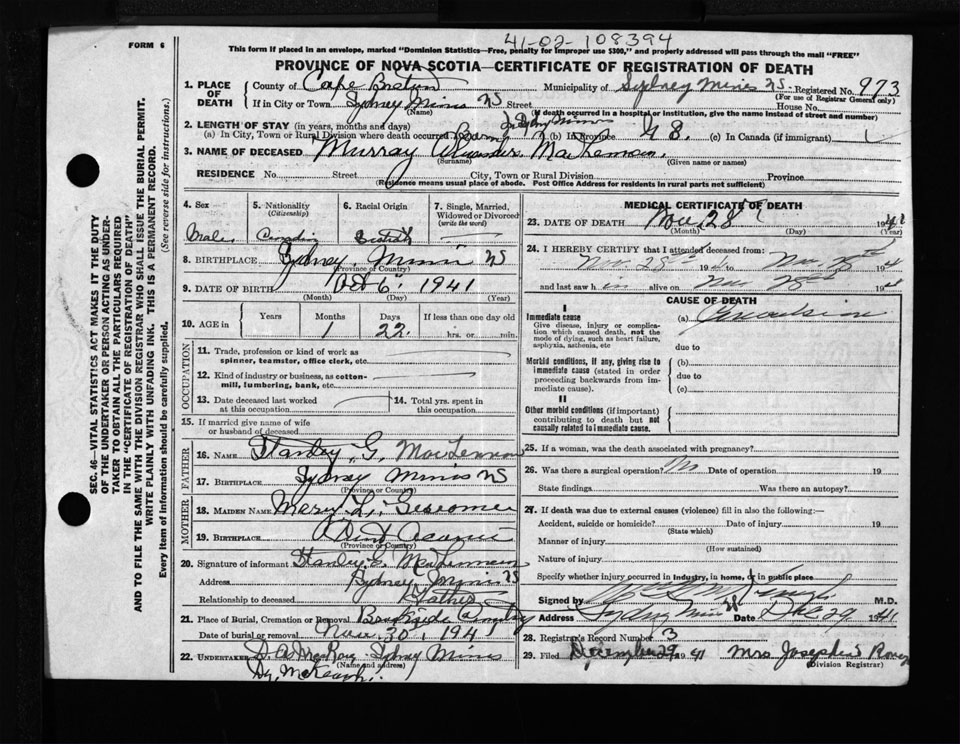 41-02-108394
FORM 6
This form if placed in an envelope, marked "Dominion Statistics—Free, penalty for improper use $300," and properly addressed will pass through the mail "FREE"
PROVINCE OF NOVA SCOTIA—CERTIFICATE OF REGISTRATION OF DEATH
1. PLACE OF DEATH
County of Cape Breton Municipality of Sydney Mines NS Registered No. 973
(For use of Registrar General only)
If in City or Town Sydney Mines NS Street House No.
(Name) (If death occurred in a hospital or institution, give the name instead of street and number)
2. LENGTH OF STAY (in years, months and days) Sydney Mines
(a) In City, Town or Rural Division where death occurred (b) In Province (c) In Canada (if immigrant)
3. NAME OF DECEASED Murray Alexander MacLennan.
(Surname) (Given name or names)
RESIDENCE No. Street City, Town or Rural Division Province
(Residence means usual place of abode. Post Office Address for residents in rural parts not sufficient)
4. Sex
Male
5. Nationality
(Citizenship)
Canadian
6. Racial Origin
Scotch
7. Single, Married, Widowed or Divorced
(write the word)
8. BIRTHPLACE Sydney Mines NS
(Province or Country)
9. DATE OF BIRTH Oct 6, 1941
(Month) (Day) (Year)
10. AGE in
Years Months Days If less than one day old
1 22 hrs. or min.
OCCUPATION
11. Trade, profession or kind of work as spinner, teamster, office clerk, etc.
12. Kind of industry or business, as cotton-mill, lumbering, bank, etc.
13. Date deceased last worked at this occupation
14. Total yrs. spent in this occupation
15. If married give name of wife or husband of deceased
FATHER
16. NAME Stanley G. MacLennan
17. BIRTHPLACE Sydney Mines NS
(Province or Country)
MOTHER
18. MAIDEN NAME Mary L.
19. BIRTHPLACE
(Province or Country)
20. Signature of informant Stanley G. MacLennan
Address Sydney Mines NS
Relationship to deceased Father
21. Place of Burial, Cremation or Removal
Date of burial or removal Nov. 30, 1941
22. UNDERTAKER D. A. Sydney Mines
(Name and address)
MEDICAL CERTIFICATE OF DEATH
23. DATE OF DEATH Nov 28th 1941
(Month) (Day) (Year)
24. I HEREBY CERTIFY that I attended deceased from:
Nov. 28th 1941 to Nov 28th 1941
and last saw him alive on Nov 28th 1941
CAUSE OF DEATH
I
Immediate cause
Give disease, injury or complication which caused death, not the mode of dying, such as heart failure, asphyxia, asthenia, etc
(a) Convulsion
due to
Morbid conditions, if any, giving rise to immediate cause (stated in order proceeding backwards from immediate cause).
(b)
due to
(c)
II
Other morbid conditions (if important) contributing to death but not causally related to immediate cause.
25. If a woman, was the death associated with pregnancy?
26. Was there a surgical operation? No Date of operation 19
State findings Was there an autopsy?
27. If death was due to external causes (violence) fill in also the following:—
Accident, suicide or homicide? Date of injury 19
(State which)
Manner of injury
(How sustained)
Nature of injury
Specify whether injury occurred in industry, in home, or in public place
Signed by M.D.
Address Sydney Mines NS Date Dec 29 1941
28. Registrar's Record Number 3
29. Filed December 29 1941 Mrs Josephine
(Division Registrar)
SEC. 46—VITAL STATISTICS ACT MAKES IT THE DUTY
OF THE UNDERTAKER OR PERSON ACTING AS UNDER-
TAKER TO OBTAIN ALL THE PARTICULARS REQUIRED
IN THE "CERTIFICATE OF REGISTRATION OF DEATH"
AND TO FILE THE SAME WITH THE DIVISION REGISTRAR WHO SHALL ISSUE THE BURIAL PERMIT.
WRITE PLAINLY WITH UNFADING INK. THIS IS A PERMANENT RECORD.
Every item of information should be carefully supplied. (See reverse side for instructions.)